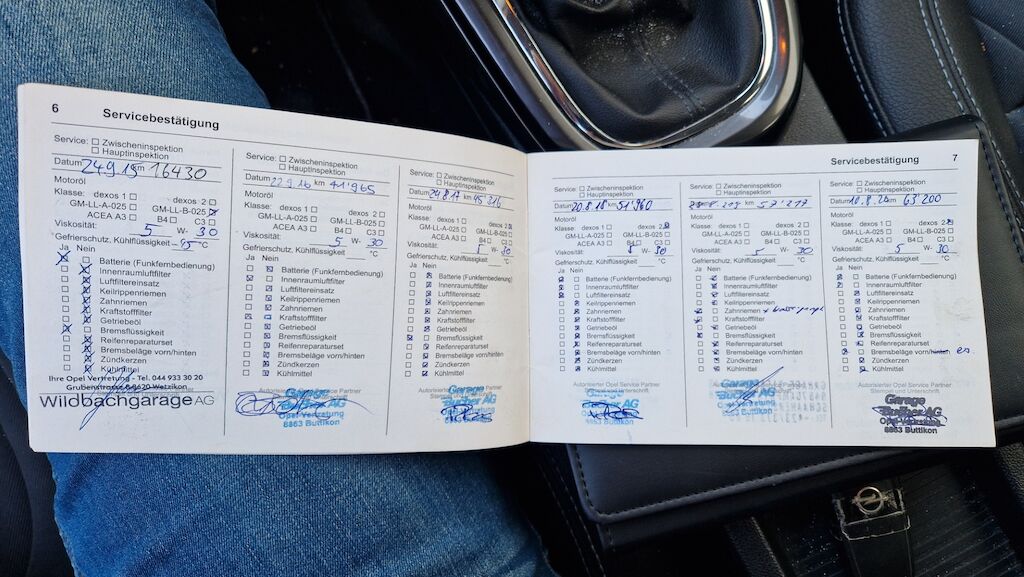 6 Servicebestätigung
Service: Zwischeninspektion
Hauptinspektion
Datum 24.9.15 km 16430
Motoröl
Klasse: dexos 1 dexos 2
GM-LL-A-025 GM-LL-B-025
ACEA A3 B4 C3
Viskosität: 5 W- 30
Gefrierschutz, Kühlflüssigkeit °C
Ja Nein
Batterie (Funkfernbedienung)
Innenraumluftfilter
Luftfiltereinsatz
Keilrippenriemen
Zahnriemen
Kraftstofffilter
Getriebeöl
Bremsflüssigkeit
Reifenreparaturset
Bremsbeläge vorn/hinten
Zündkerzen
Kühlmittel
Ihre Opel Vertretung - Tel. 044 933 30 20
Grubenstrasse 8620 Wetzikon
Wildbachgarage AG
Service: Zwischeninspektion
Hauptinspektion
Datum 22.9.16 km 41965
Motoröl
Klasse: dexos 1 dexos 2
GM-LL-A-025 GM-LL-B-025
ACEA A3 B4 C3
Viskosität: 5 W- 30
Gefrierschutz, Kühlflüssigkeit °C
Ja Nein
Batterie (Funkfernbedienung)
Innenraumluftfilter
Luftfiltereinsatz
Keilrippenriemen
Zahnriemen
Kraftstofffilter
Getriebeöl
Bremsflüssigkeit
Reifenreparaturset
Bremsbeläge vorn/hinten
Zündkerzen
Kühlmittel
Autorisierter Opel Service Partner
Opel-Vertretung
8863 Buttikon
Service: Zwischeninspektion
Hauptinspektion
Datum 24.8.17 km 45316
Motoröl
Klasse: dexos 1 dexos 2
GM-LL-A-025 GM-LL-B-025
ACEA A3 B4 C3
Viskosität: 5 W- 30
Gefrierschutz, Kühlflüssigkeit °C
Ja Nein
Batterie (Funkfernbedienung)
Innenraumluftfilter
Luftfiltereinsatz
Keilrippenriemen
Zahnriemen
Kraftstofffilter
Getriebeöl
Bremsflüssigkeit
Reifenreparaturset
Bremsbeläge vorn/hinten
Zündkerzen
Kühlmittel
Autorisierter Opel Service Partner
Stempel und Unterschrift
Garage
AG
8863 Buttikon
Servicebestätigung 7
Service: Zwischeninspektion
Hauptinspektion
Datum 20.8.18 km 51960
Motoröl
Klasse: dexos 1 dexos 2
GM-LL-A-025 GM-LL-B-025
ACEA A3 B4 C3
Viskosität: 5 W- 30
Gefrierschutz, Kühlflüssigkeit °C
Ja Nein
Batterie (Funkfernbedienung)
Innenraumluftfilter
Luftfiltereinsatz
Keilrippenriemen
Zahnriemen
Kraftstofffilter
Getriebeöl
Bremsflüssigkeit
Reifenreparaturset
Bremsbeläge vorn/hinten
Zündkerzen
Kühlmittel
Autorisierter Opel Service Partner
Stempel und Unterschrift
Garage
AG
8863 Buttikon
Service: Zwischeninspektion
Hauptinspektion
57217
Motoröl
Klasse: dexos 1 dexos 2
GM-LL-A-025 GM-LL-B-025
ACEA A3 B4 C3
Viskosität: 5 W- 30
Gefrierschutz, Kühlflüssigkeit °C
Ja Nein
Batterie (Funkfernbedienung)
Innenraumluftfilter
Luftfiltereinsatz
Keilrippenriemen
Zahnriemen
Kraftstofffilter
Getriebeöl
Bremsflüssigkeit
Reifenreparaturset
Bremsbeläge vorn/hinten
Zündkerzen
Kühlmittel
Autorisierter Opel Service Partner
Garage
AG
8863 Buttikon
Service: Zwischeninspektion
Hauptinspektion
Datum 10.8.20 km 63200
Motoröl
Klasse: dexos 1 dexos 2
GM-LL-A-025 GM-LL-B-025
ACEA A3 B4 C3
Viskosität: 5 W- 30
Gefrierschutz, Kühlflüssigkeit °C
Ja Nein
Batterie (Funkfernbedienung)
Innenraumluftfilter
Luftfiltereinsatz
Keilrippenriemen
Zahnriemen
Kraftstofffilter
Getriebeöl
Bremsflüssigkeit
Reifenreparaturset
Bremsbeläge vorn/hinten
Zündkerzen
Kühlmittel
Autorisierter Opel Service Partner
Stempel und Unterschrift
Garage
AG
8863 Buttikon